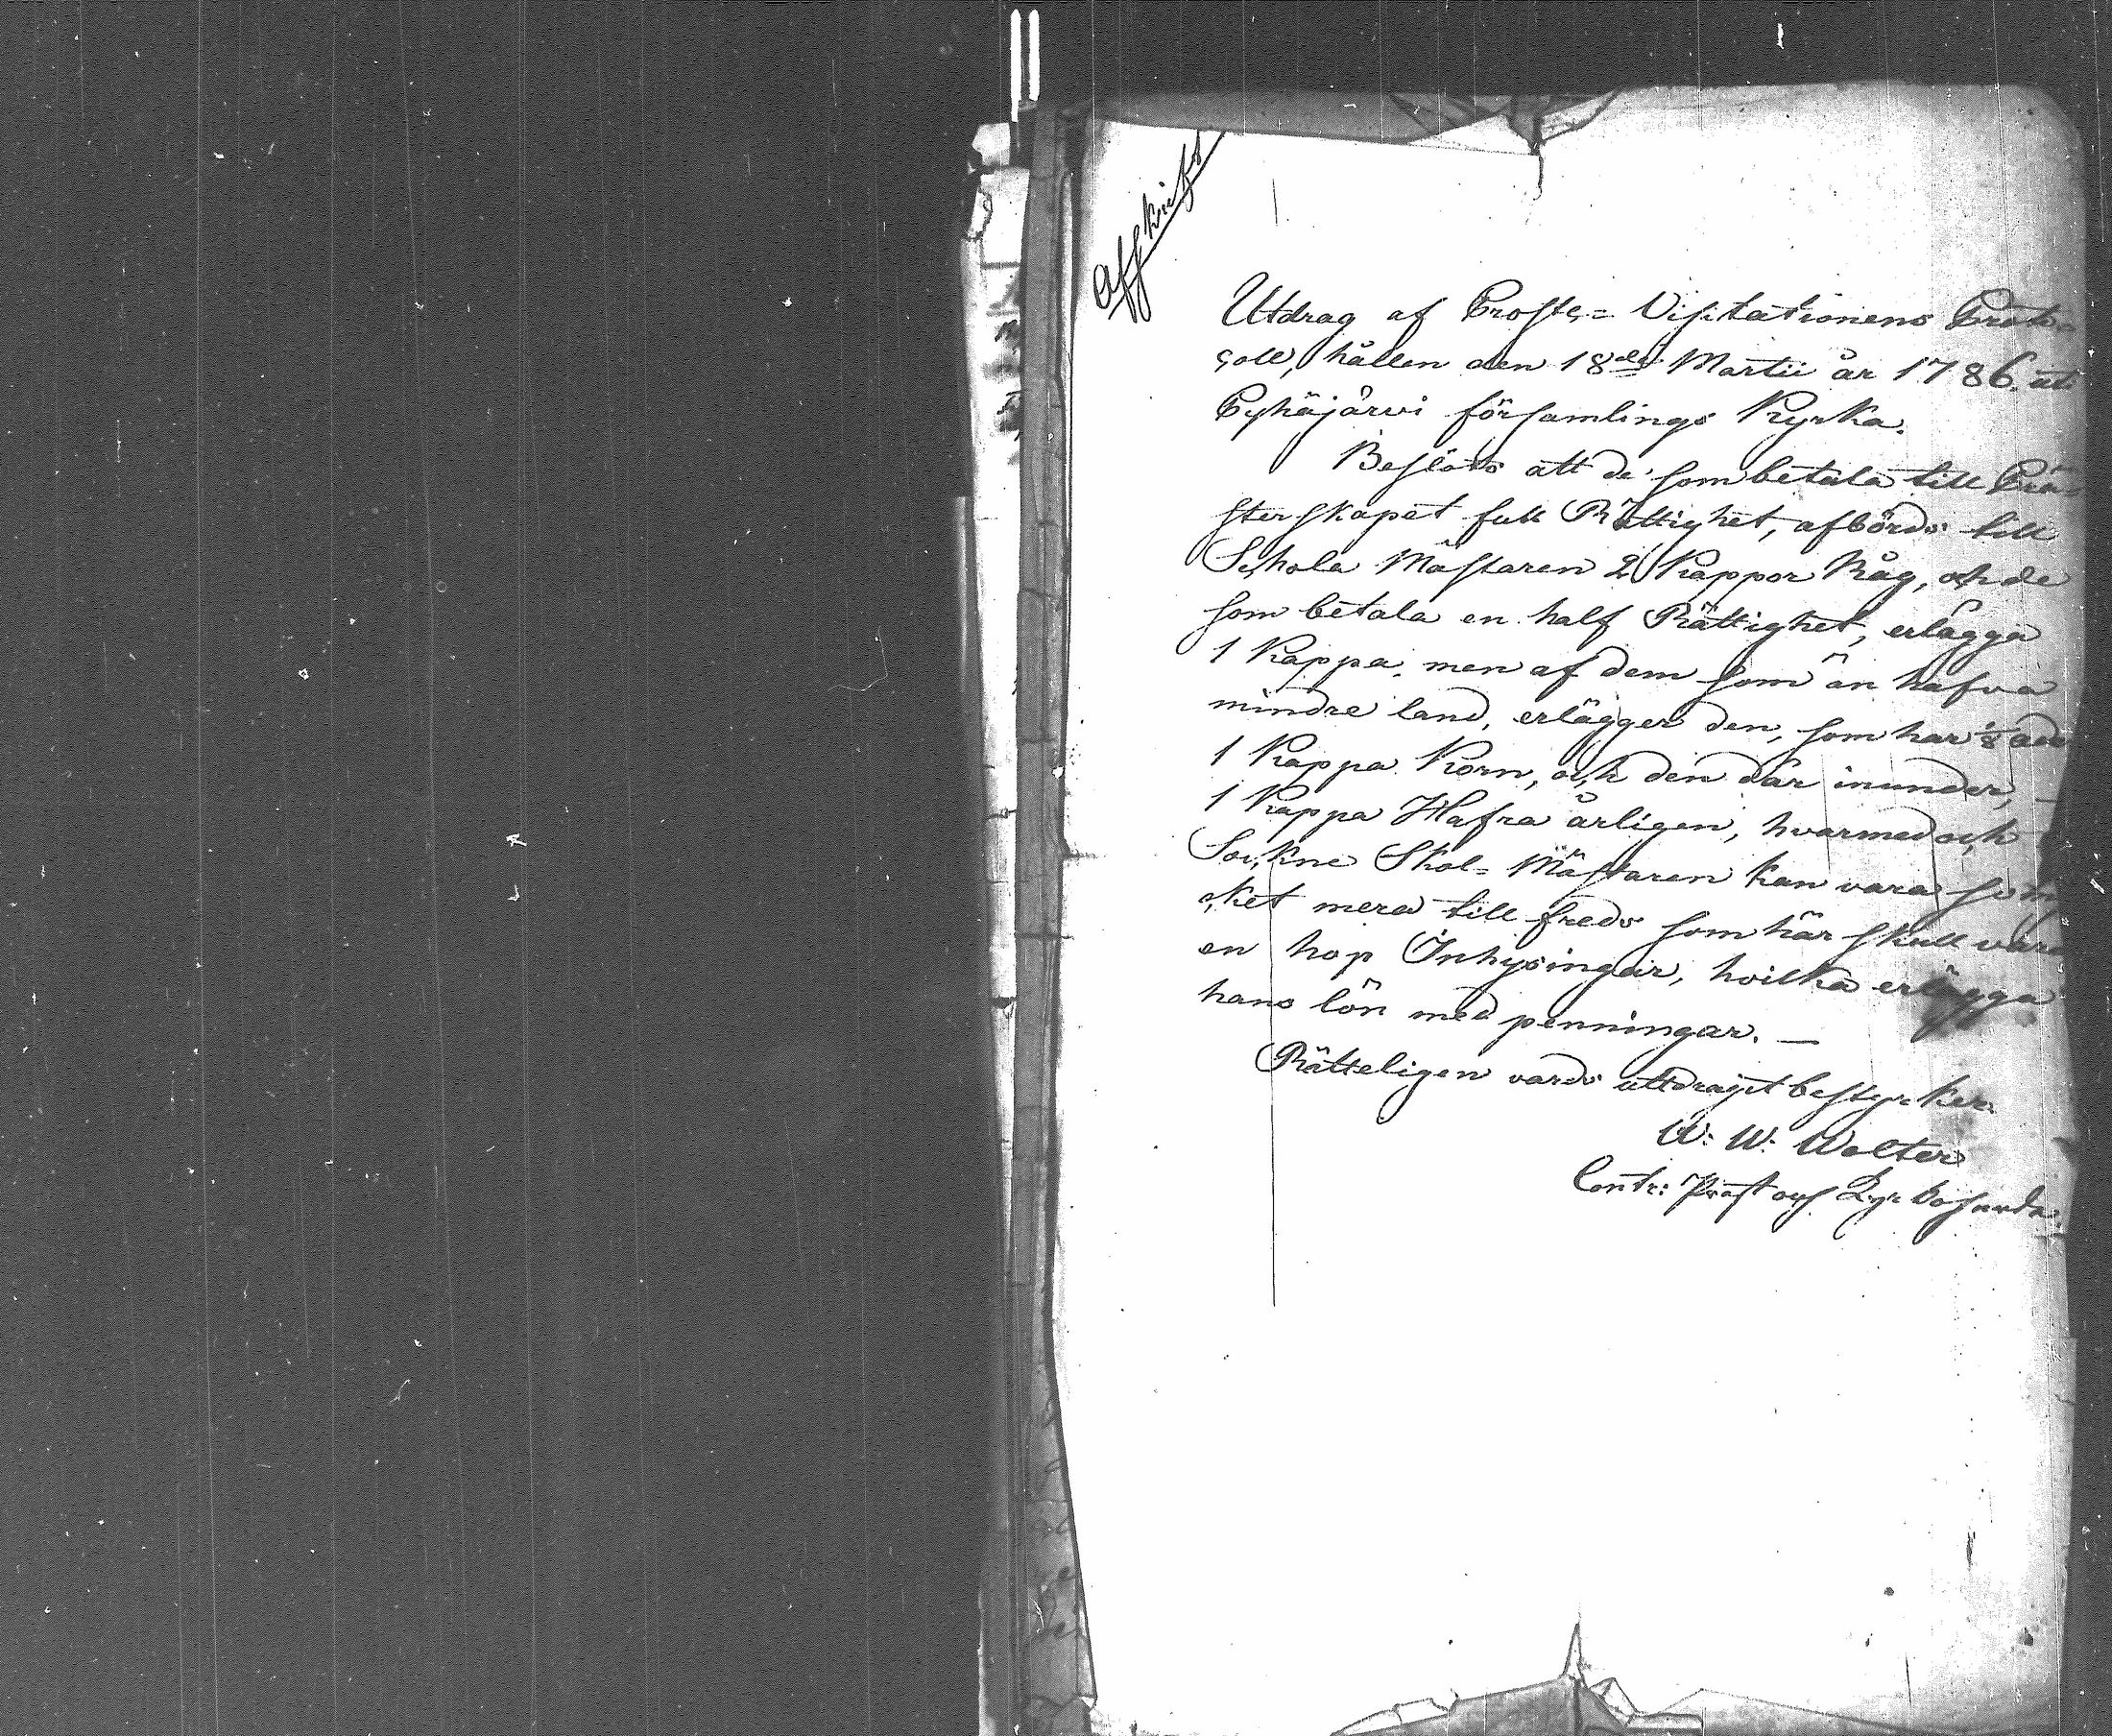 Afskrift
Utdrag af Prosts-Visitationens Proto-
coll, hållen den 18de Martii år 1786. uti
Pyhäjärvi församlings Kyrka.
Beslöts att de som betala till Prä-
sterskapet full Rättighet, afbörds till
Schola Mästaren 2 Kappor Råg, och de
som betala en half Rättighet, erlägga
1 Kappa. men af dem som än hafva
mindre land, erlägger den, som har 1/8
1 Kappa Korn, och den där inunder, —
1 Kappa Hafra årligen, hvarmed och
Sockne Skol-Mästaren kan vara så my-
cket mera till freds som här skall vara
en hop Inhysingar, hvilka erlägga
hans lön med penningar. —
Rätteligen vards utdraget bestyrker.
W. W. Walter
Contr: Prost och Kyrkoherde.